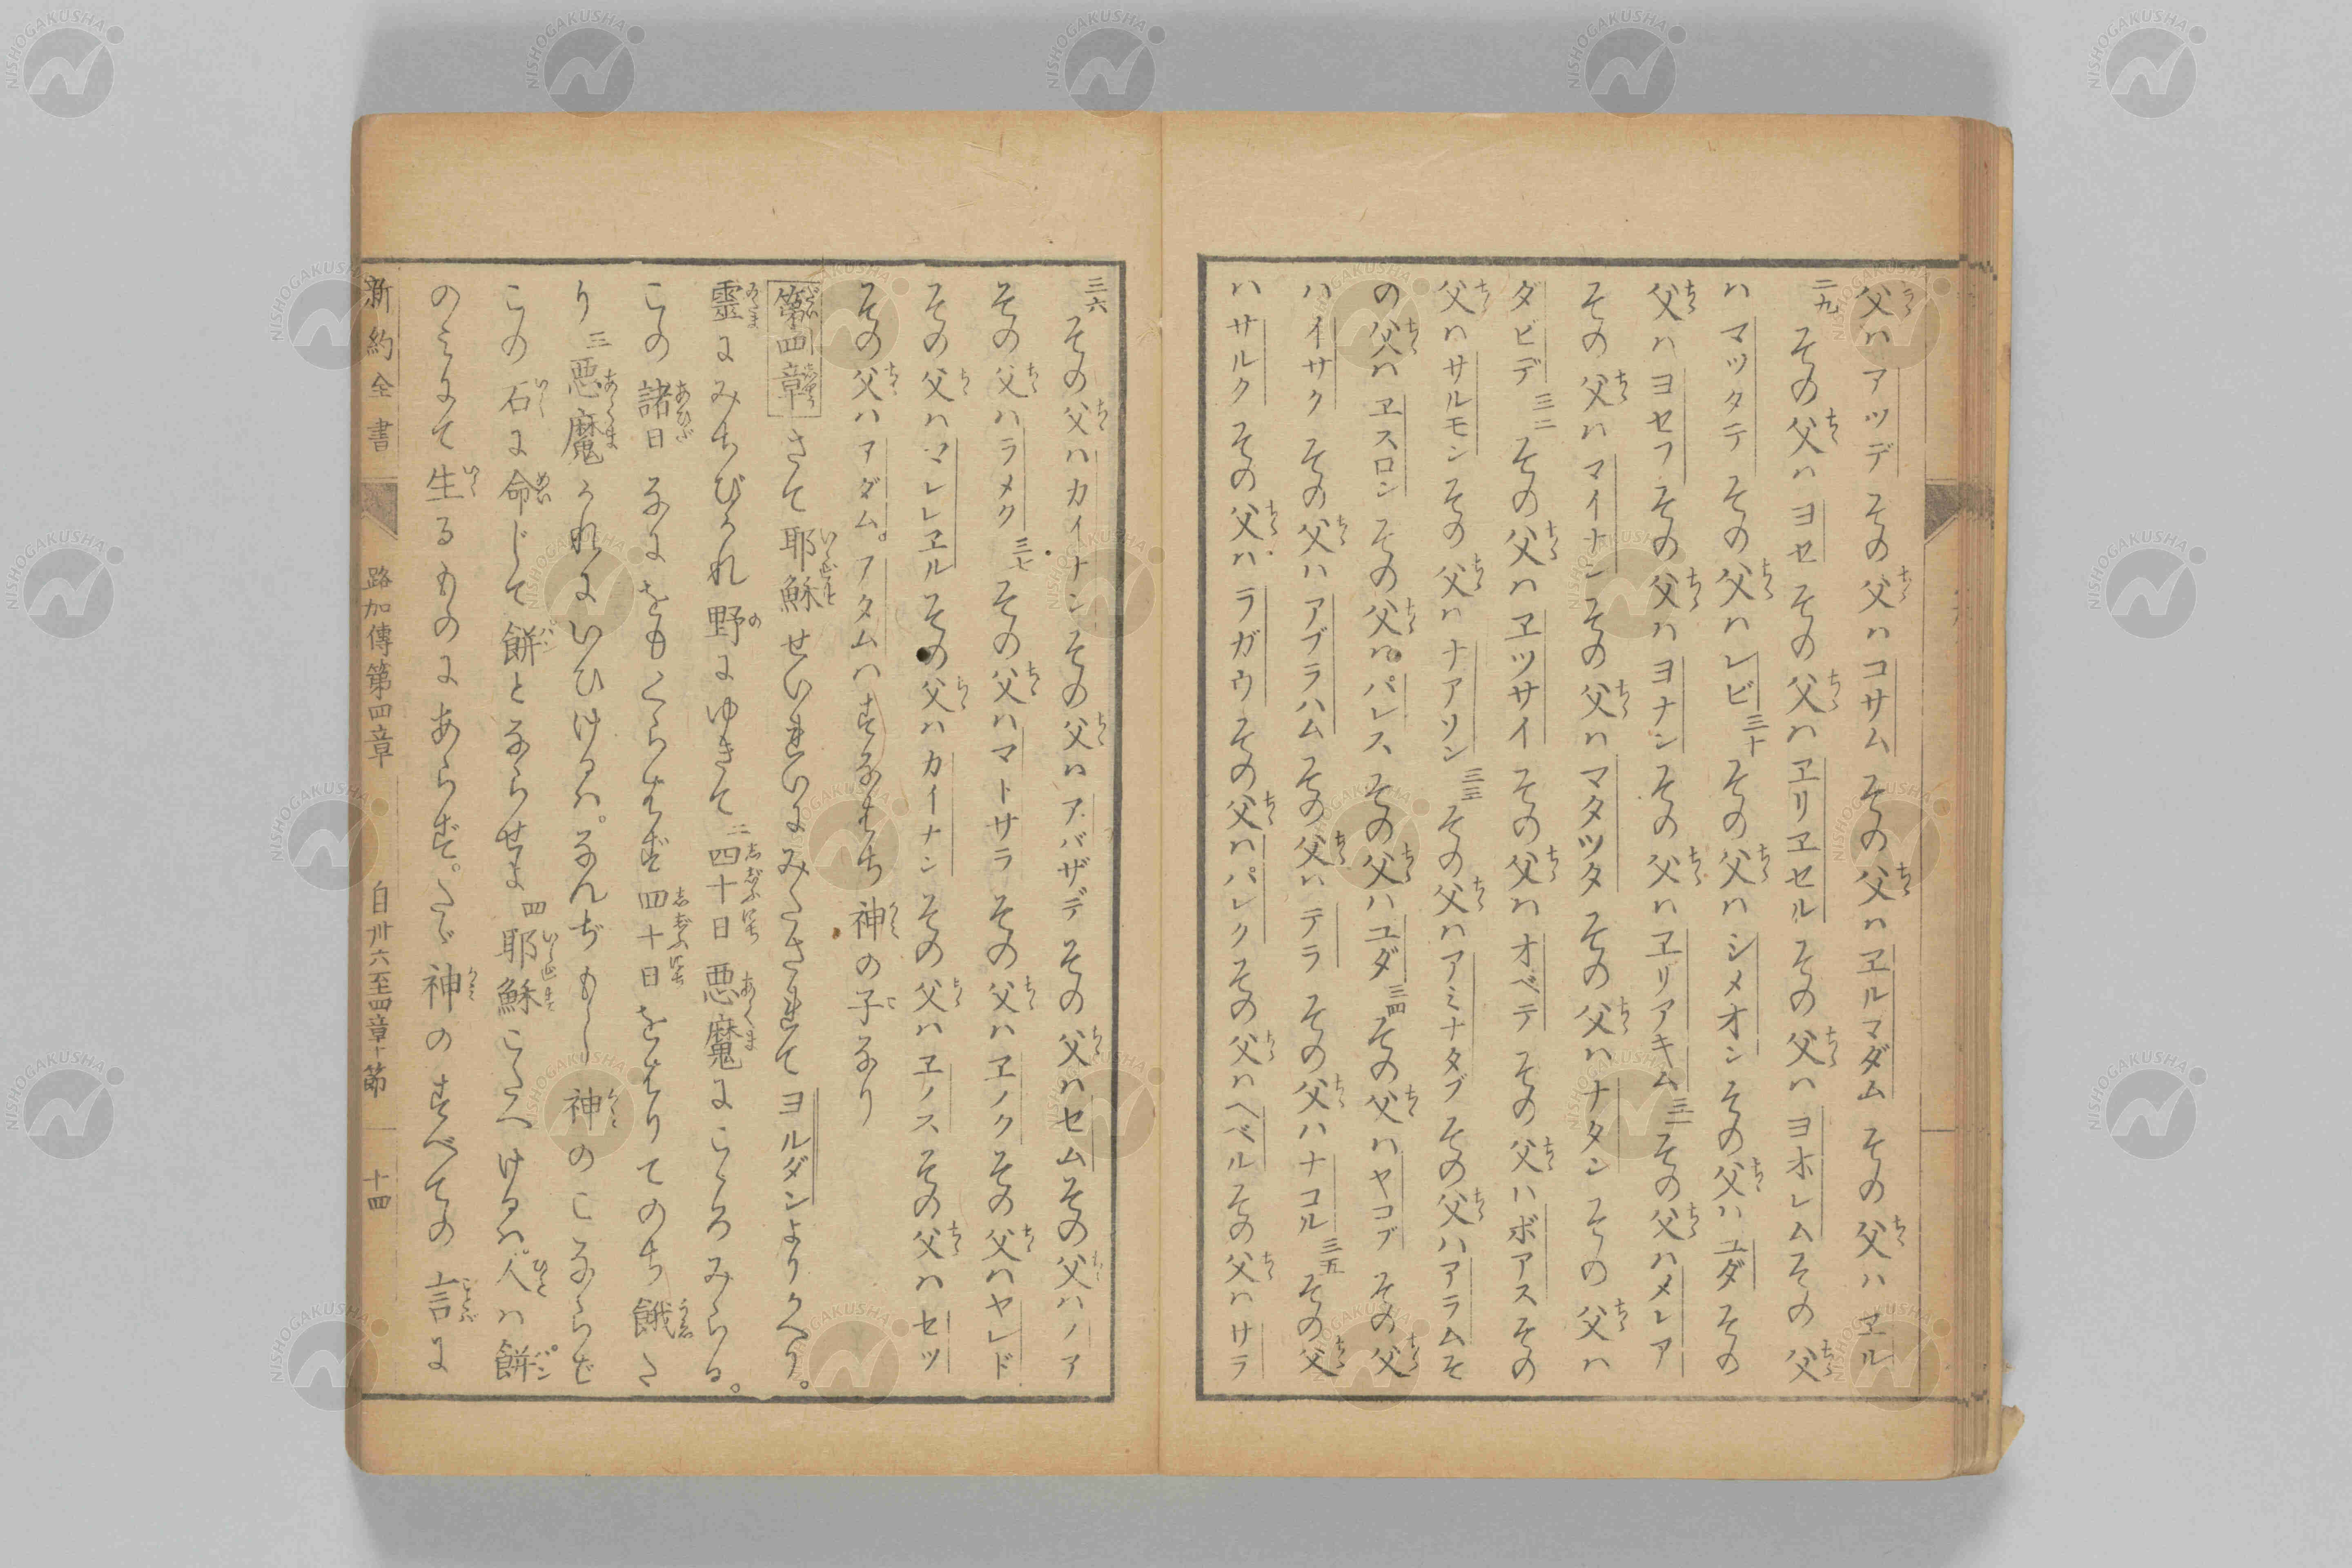 父ハアツデその父ハコサムその父ハヱルマダムその父ハヱル
二九その父ハヨセその父ハヱリヱセルその父ハヨホレムその父
ハマツタテその父ハレビ三十その父ハシメオンその父ハユダその
父ハヨセフその父ハヨナンその父ハヱリアキム三一その父ハメレア
その父ハマイナンその父ハマタツタその父ハナタンその父ハ
ダビデ三二その父ハヱツサイその父ハオベテその父ハボアスその
父ハサルモンその父ハナアソン三三その父ハアミナタブその父ハアラムそ
の父ハヱスロンその父ハパレスその父ハユダ三四その父ハヤコブその父
ハイサクその父ハアブラハムその父ハテラその父ハナコル三五その父
ハサルクその父ハラガウその父ハパレクその父ハヘベルその父ハサラ
三六その父ハカイナンその父ハアバザデその父ハセムその父ハノア
その父ハラメク三七その父ハマトサラその父ハヱノクその父ハヤレド
その父ハマレレヱルその父ハカイナンその父ハヱノスその父ハセツ
その父ハアダム。アタムハすなはち神の子なり
第四章さて耶穌せいれいにみたされてヨルダンよりかへり。
靈にみちびかれ野にゆきて二四十日惡魔にこゝろみらる。
この諸日なにをもくらはず四十日をはりてのち餓た
り三惡魔かれにいひけるハ。なんぢもし神のこならバ
この石に命じて餅とならせよ四耶穌こたへけるハ。人ハ餅
のみにて生るものにあらず。たゞ神のすべての言に
新約全書 路加傳第四章 自卅六至四章十節 十四
NISHOGAKUSHA